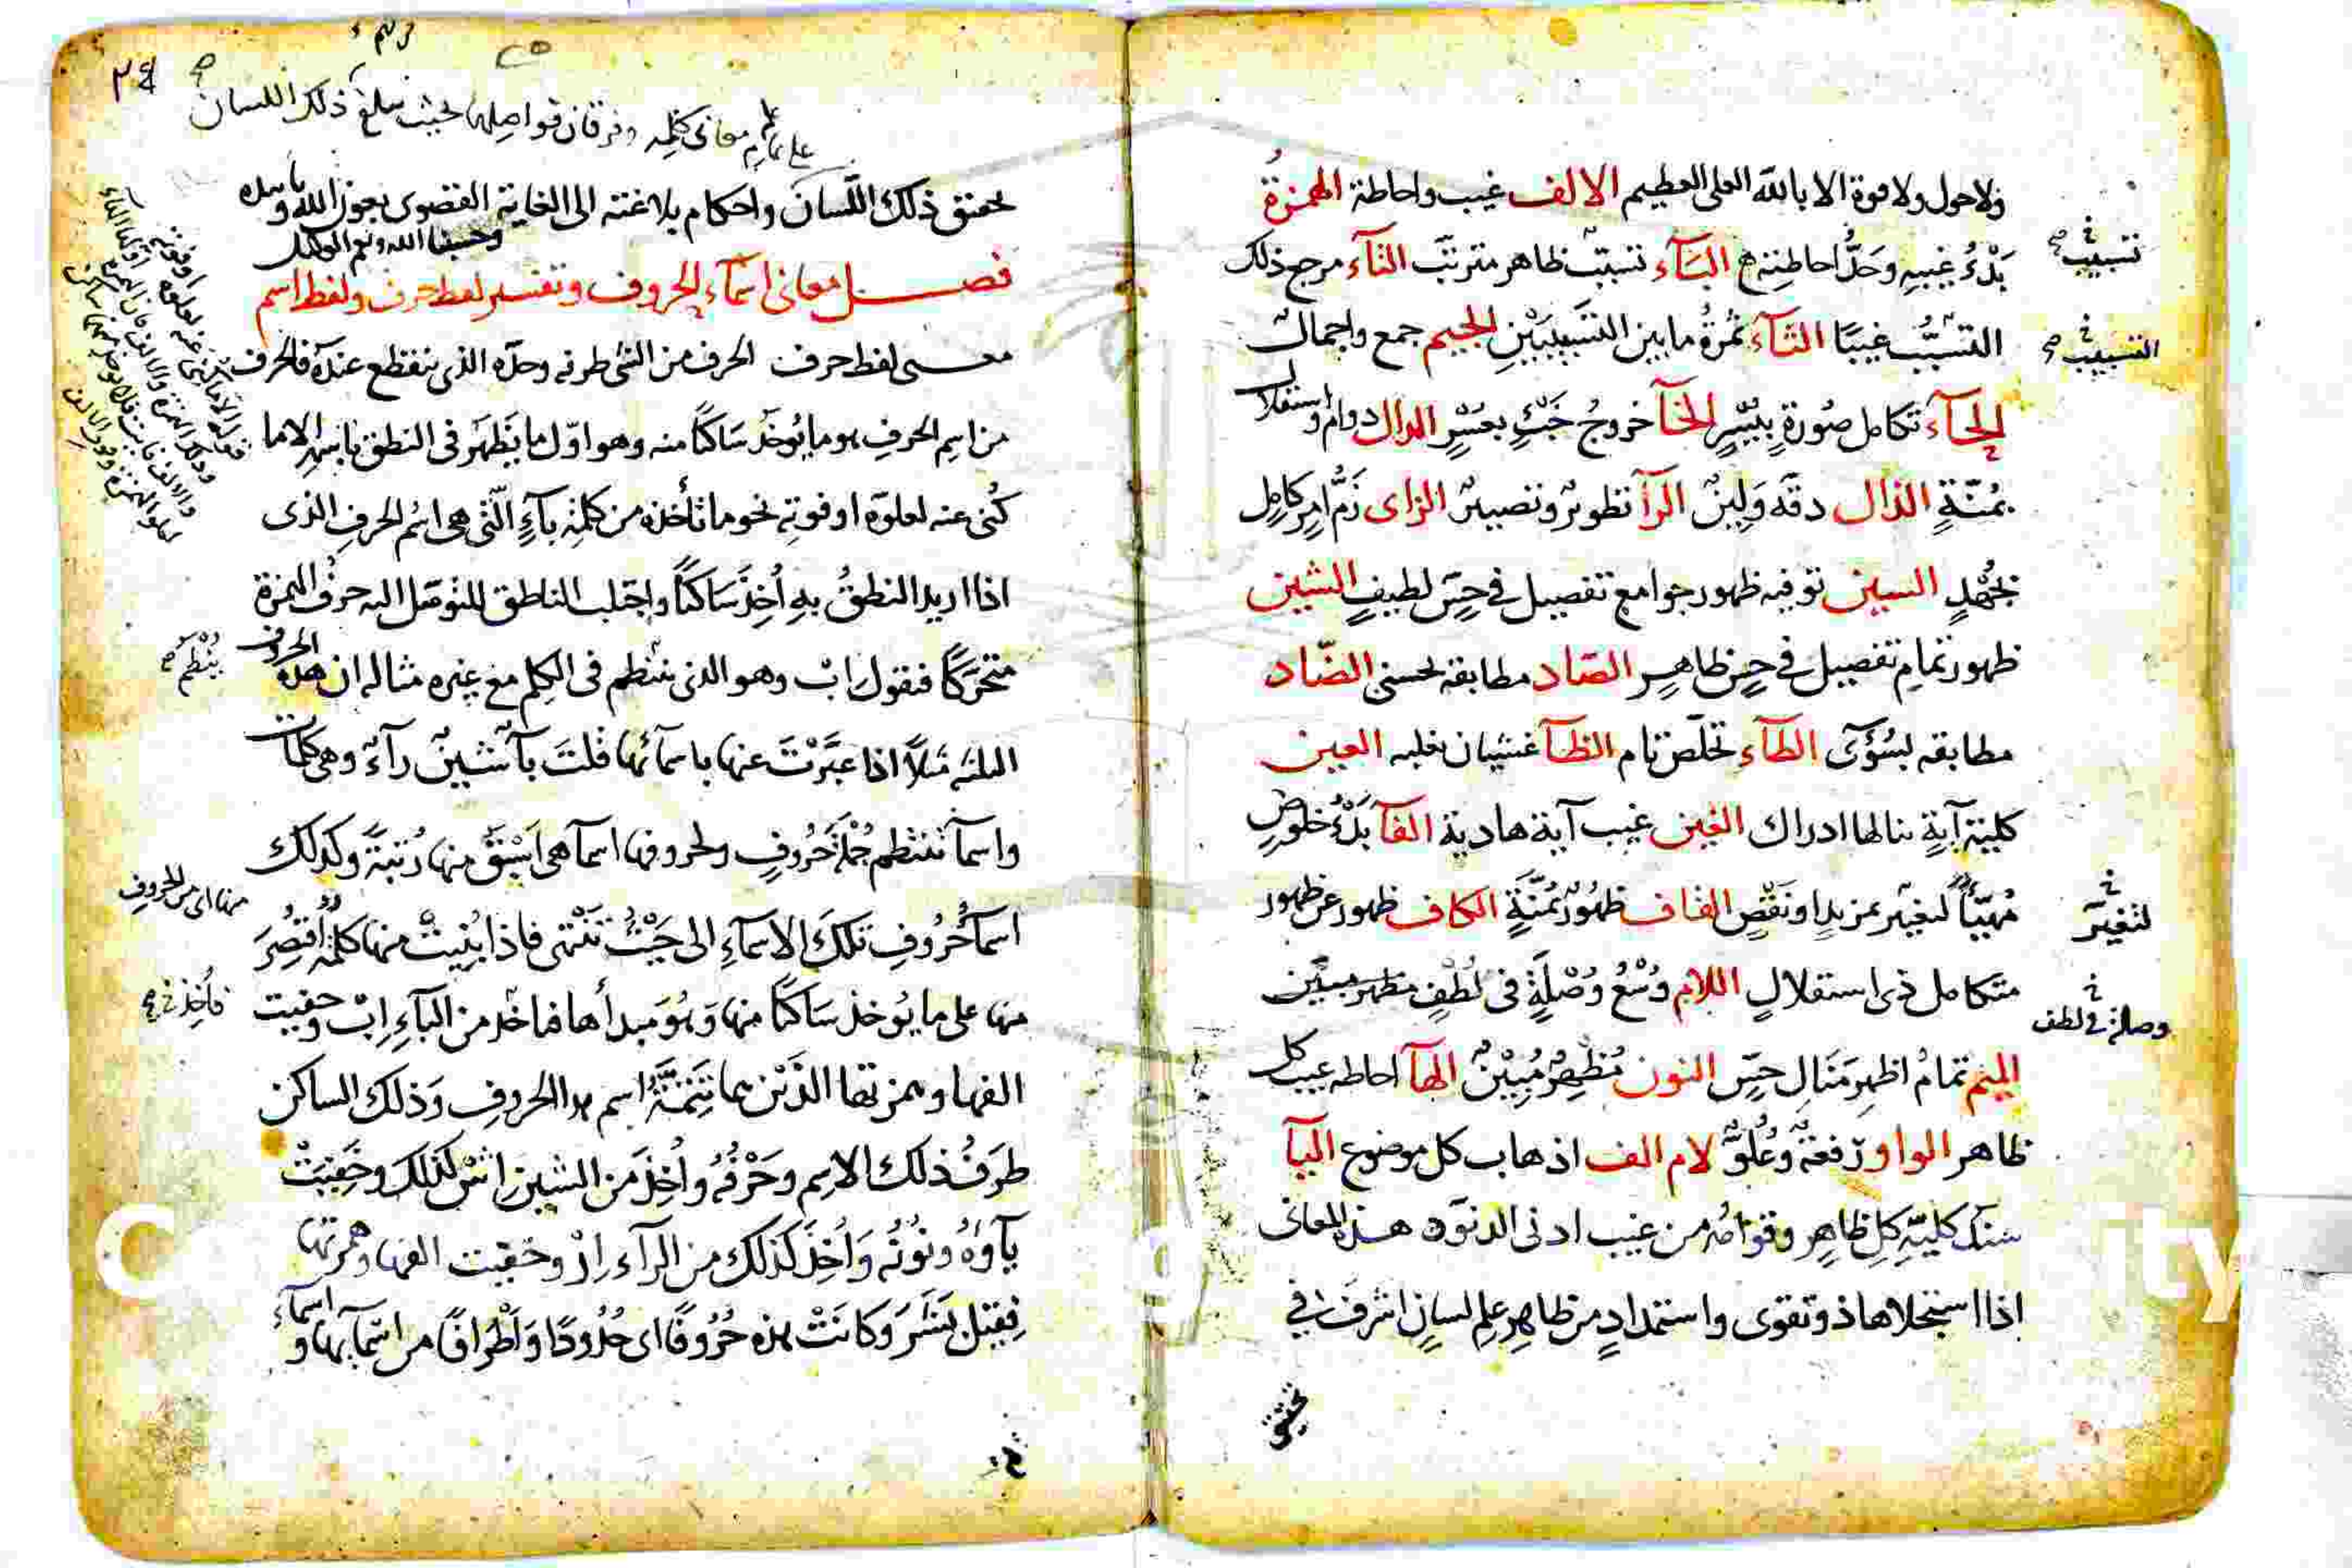 ولا حول ولا قوة الا بالله العلى العظيم الالف غيب واحاطة الهمزة
بَدْءُ غيبهِ وحَدُّ احاطته البآء تسبّب ظاهر مترتب التآء مرجع ذلك
تسبيب
التسبُّب غيبًا الثآء ثمرةُ ما بين التسبيبَيْنِ الجيم جمع واجمال
التسبيب
الحآء تكامل صُورةٍ بيُسْرٍ الخآ خروجُ خَبْءٍ بعُسْرٍ الدال دوام واستقلال
بمُنّةٍ الذال دقة وَلِينٌ الرآ تطويرٌ وتصييرٌ الزاى زَمُّ امرٍ كامِلٍ
بجُهْدٍ السين توفيه ظهور جوامع تفصيل فى حِسّ لطيفٍ الشين
ظهور تمامِ تفصيل فى حِسٍّ ظاهِرٍ الصّاد مطابقة لحسنى الضّاد
مطابقه لسُوْءَى الطآء تخلّص تام الظآ غشيان بغلبه العين
كلية آيةٍ ينالها ادراك الغين غيب آية هادية الفآ بَدْءُ خلوصٍ
مُهيّأً لتغيّر بمزيدٍ او نَقْصٍ القاف ظهُورُ بمُنَّةٍ الكاف ظهور عن ظهور
لتغيّر
متكامل ذى استقلالٍ اللام وُسْعُ وُصْلَةٍ فى لُطْفٍ مظهر مبيّن
وصلة فى لطف
الميم تمامُ اظهر مَنَالِ حِسّ النون مُظهِرٌ مُبِيْنٌ الهآ احاطه غيب كل
ظاهر الواو رفعةٌ وعُلوٌّ لام الف اذهاب كل موضوع اليآ
سنَد كليّةِ كل ظاهِرٍ وقوامُه من غيب ادنى الدنوّ هذه المعانى
اذا استجلاها ذو تقوى واستمدادٍ من ظاهِرِ علمِ لسانٍ اشرفَ فى
٢٤
على تمام علم معانى كلمه وفرقان فواصلها بحيث يبلغ ذلك اللسان
تحقيق ذلك اللّسان واحكام بلاغته الى الغاية القصوى بعون الله وتأييده
وحسبنا الله ونعم الوكيل
فصل معانى اسمآء الحروف وتفسير لفظ حرف ولفظ اسم
معنى لفظ حرف الحرف من الشئ طرفه وحدّه الذى ينقطع عنده فالحرف
من اسِم الحرفِ هو ما يُوخَذ سَاكنًا منه وهو اوّل ما يَظهَر فى النطق باسمه الاما
كُنى عنه لعلوّه او فوتِه نحو ما تأخذه من كلمة بآءٍ الّتى هى اسُم الحرفِ الذى
اذا اريد النطقُ بِهِ اُخِذَ سَاكنًا واجتلب الناطق للتوصّل اليه حرفُ الهمزة
متحرّكًا فتقول اِبْ وهو الذى ينتظم فى الكلِم مع غيره مثاله ان هذه الحروف
يُنْظم
الثلثه مَثلاً اذا عبَّرْتَ عنها باسمآئها قلتَ بآ شينٌ رآءٌ وهى كلمات
واسمآ تنتظم جُمْلَةَ حُروُفٍ ولحروفها اسمآ هى اَسْبَقُ منها رُتبَةً وكذلك
منها اى من الحروف
اسمآ حُرُوفِ تلكَ الاسمآءِ الى حَيْثُ تَنْتهى فاذا بُنِيَتْ منها كلمُة اُقتُصِرَ
منها على ما يُوخذ سَاكنًا منها وَهُوَ مبدأها فماخذ من البآءِ اِبْ وخفيت
فاُخِذَ
الفها وهمزتها الذَيْن بهما تَتِمّةُ اسم هذا الحروفِ وَذلك الساكن
طرَفُ ذلك الاسِم وحَرْفُهُ واُخِذَ من الشين اِشْ كذلك وخَفِيَتْ
يآؤهُ ونُونُه وَاُخِذَ كذلك من الرآء اِرْ وخفيت الفها وهمزتها
فقيل بَشَرَ وَكانَتْ هذه حُرُوفًا اى حُدُودًا وَاَطْرافًا من اسمآيها واسمآء